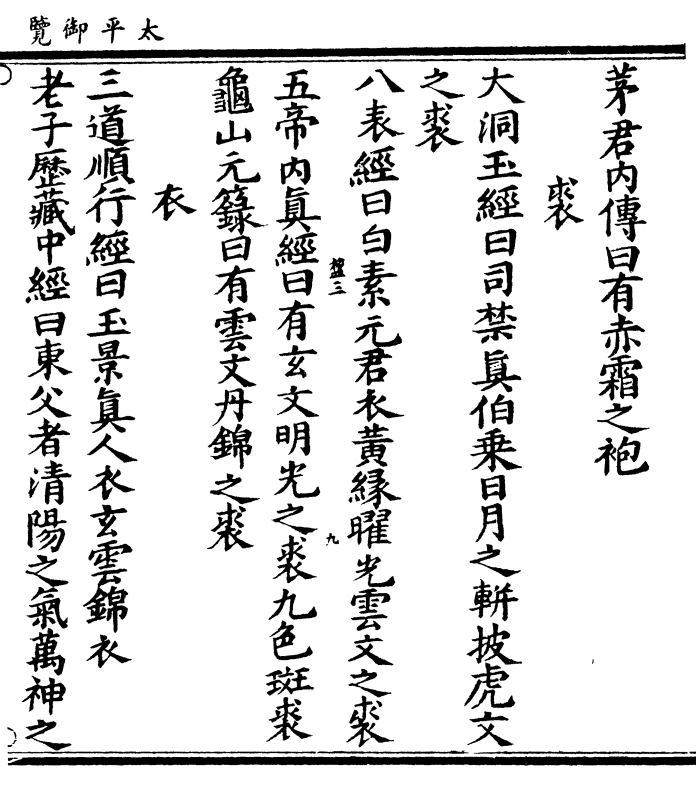 太平御覽
茅君内傳曰有赤霜之袍
裘
大洞玉經曰司禁眞伯乗日月之軿披虎文
之裘
八表經曰白素元君衣黃縁曜光雲文之裘
五帝内眞經曰有玄文明光之裘九色斑裘
龜山元籙曰有雲文丹錦之裘
衣
三道順行經曰玉景眞人衣玄雲錦衣
老子歷藏中經曰東父者清陽之氣萬神之